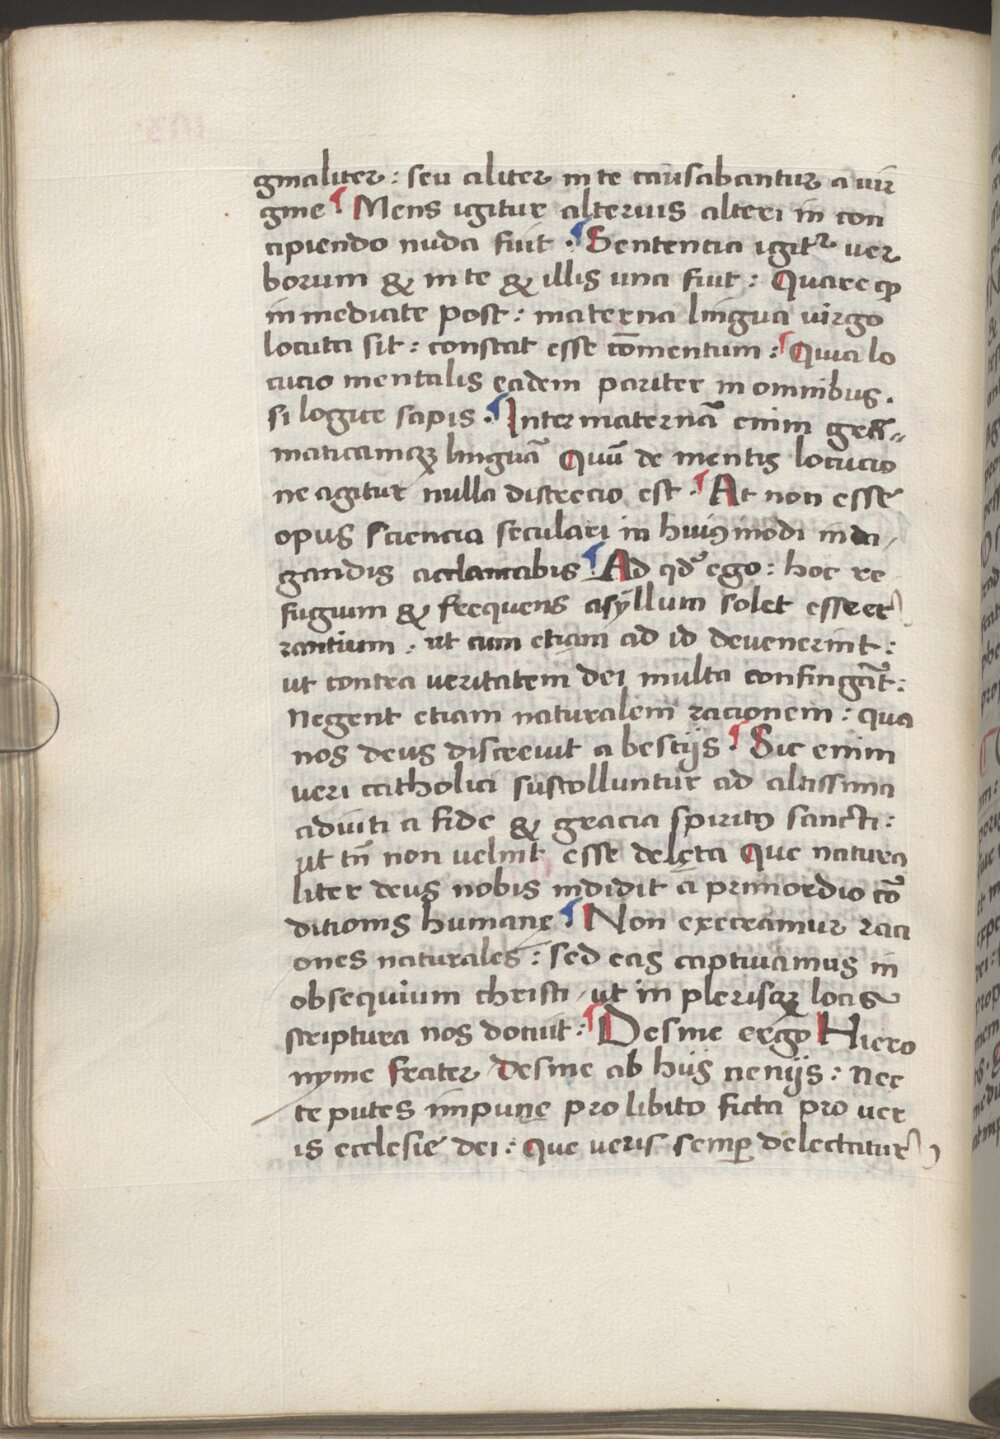 ginaliter : seu aliter in te causabantur a vir
gine Mens igitur alterius alteri in con
cipiendo nuda fuit . Sententia igitr uer
borum & in te & illis una fuit : Quare qp
inmediate post : materna lingua virgo
locuta sit : constat esse co̅mentum : Quia lo
cucio mentalis eadem pariter in omnibus .
si logice sapis . Inter materna̅ enim gra̅=
maticamqꝫ lingua̅ Quu̅ de mentis locucio
ne agitur nulla discrecio est . At non esse
opus sciencia seculari in huiꝰmodi inda/
gandis acclamabis . Ad qd̅ ego : hoc re
fugium & frequens asyllum solet esse er
rantium . ut cum etiam ad id devenerint :
ut contra veritatem dei multa confinga̅t :
Negent etiam naturalem racionem : qua
nos deus discrevit a bestijs . Sic enim
ueri catholici sustolluntur ad altissima
adiuti a fide & gracia spiritꝰ sancti :
ut tn̅ non uelint esse delęta Que natura
liter deus nobis indidit a primordio co̅
ditionis humanę Non execramur raci
ones naturales : sed eas captivamus in
obsequium christi / ut in plerisqꝫ locis
scriptura nos docuit : Desine ergo Hiero
nyme frater desine ab hijs nenijs : Nec
te putes impunę pro libito ficta pro uer
is ecclesie dei : que veris semꝑ delectatur